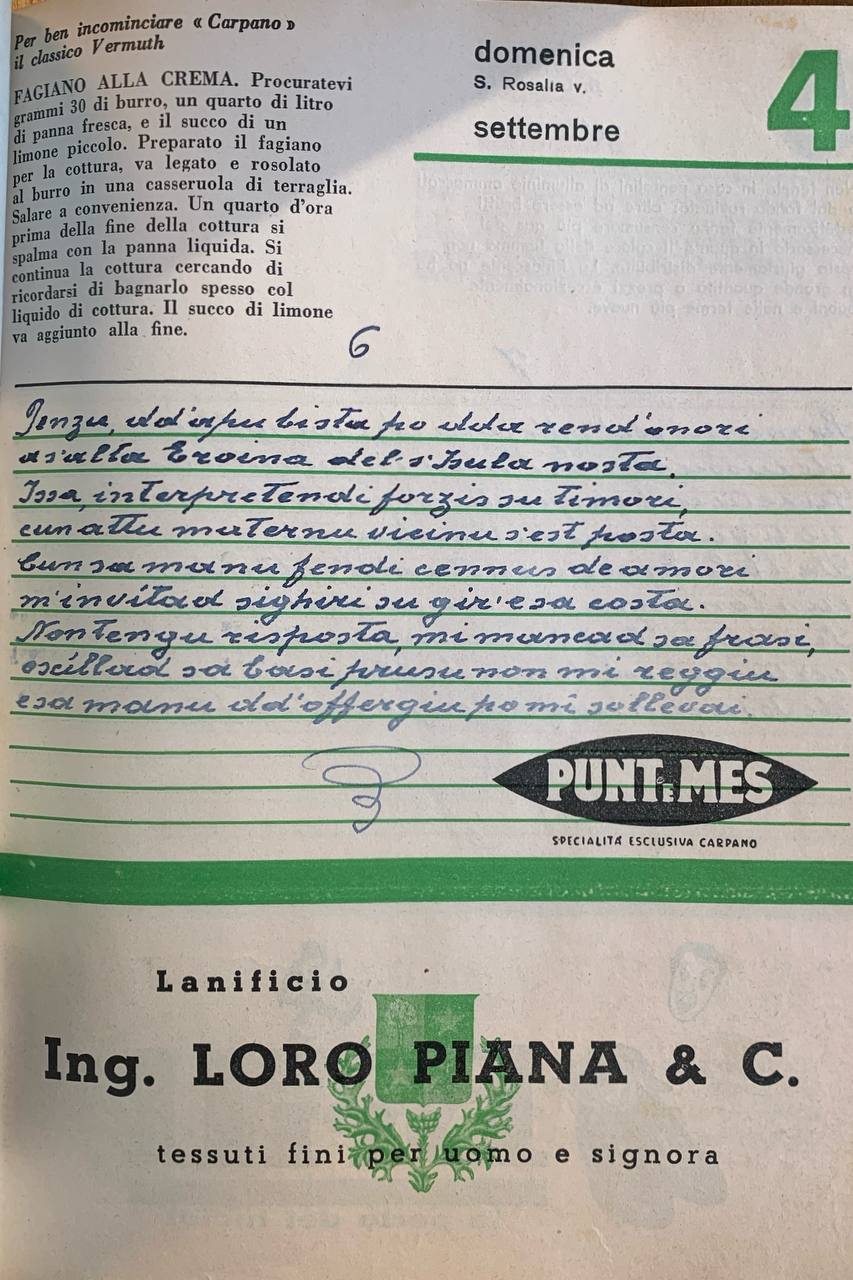 Per ben incominciare « Carpano »
il classico Vermuth
FAGIANO ALLA CREMA. Procuratevi
grammi 30 di burro, un quarto di litro
di panna fresca, e il succo di un
limone piccolo. Preparato il fagiano
per la cottura, va legato e rosolato
al burro in una casseruola di terraglia.
Salare a convenienza. Un quarto d'ora
prima della fine della cottura si
spalma con la panna liquida. Si
continua la cottura cercando di
ricordarsi di bagnarlo spesso col
liquido di cottura. Il succo di limone
va aggiunto alla fine.
domenica
S. Rosalia v.
settembre
4
6
Penzu, dd'apu bista po dda rend'onori
as'alta Eroina del s'Isula nosta,
Issa, interpretendi forzis su timori,
cun attu maternu vicinu s'est posta.
Cun sa manu fendi cennus de amori
m'invitad sighiri su gir'e sa costa.
Non tengu risposta, mi mancad sa frasi,
oscillad sa basi prusu non mi reggiu
e sa manu dd'offergiu po mi sollevai.
PUNT E MES
SPECIALITÀ ESCLUSIVA CARPANO
Lanificio
Ing. LORO PIANA & C.
tessuti fini per uomo e signora